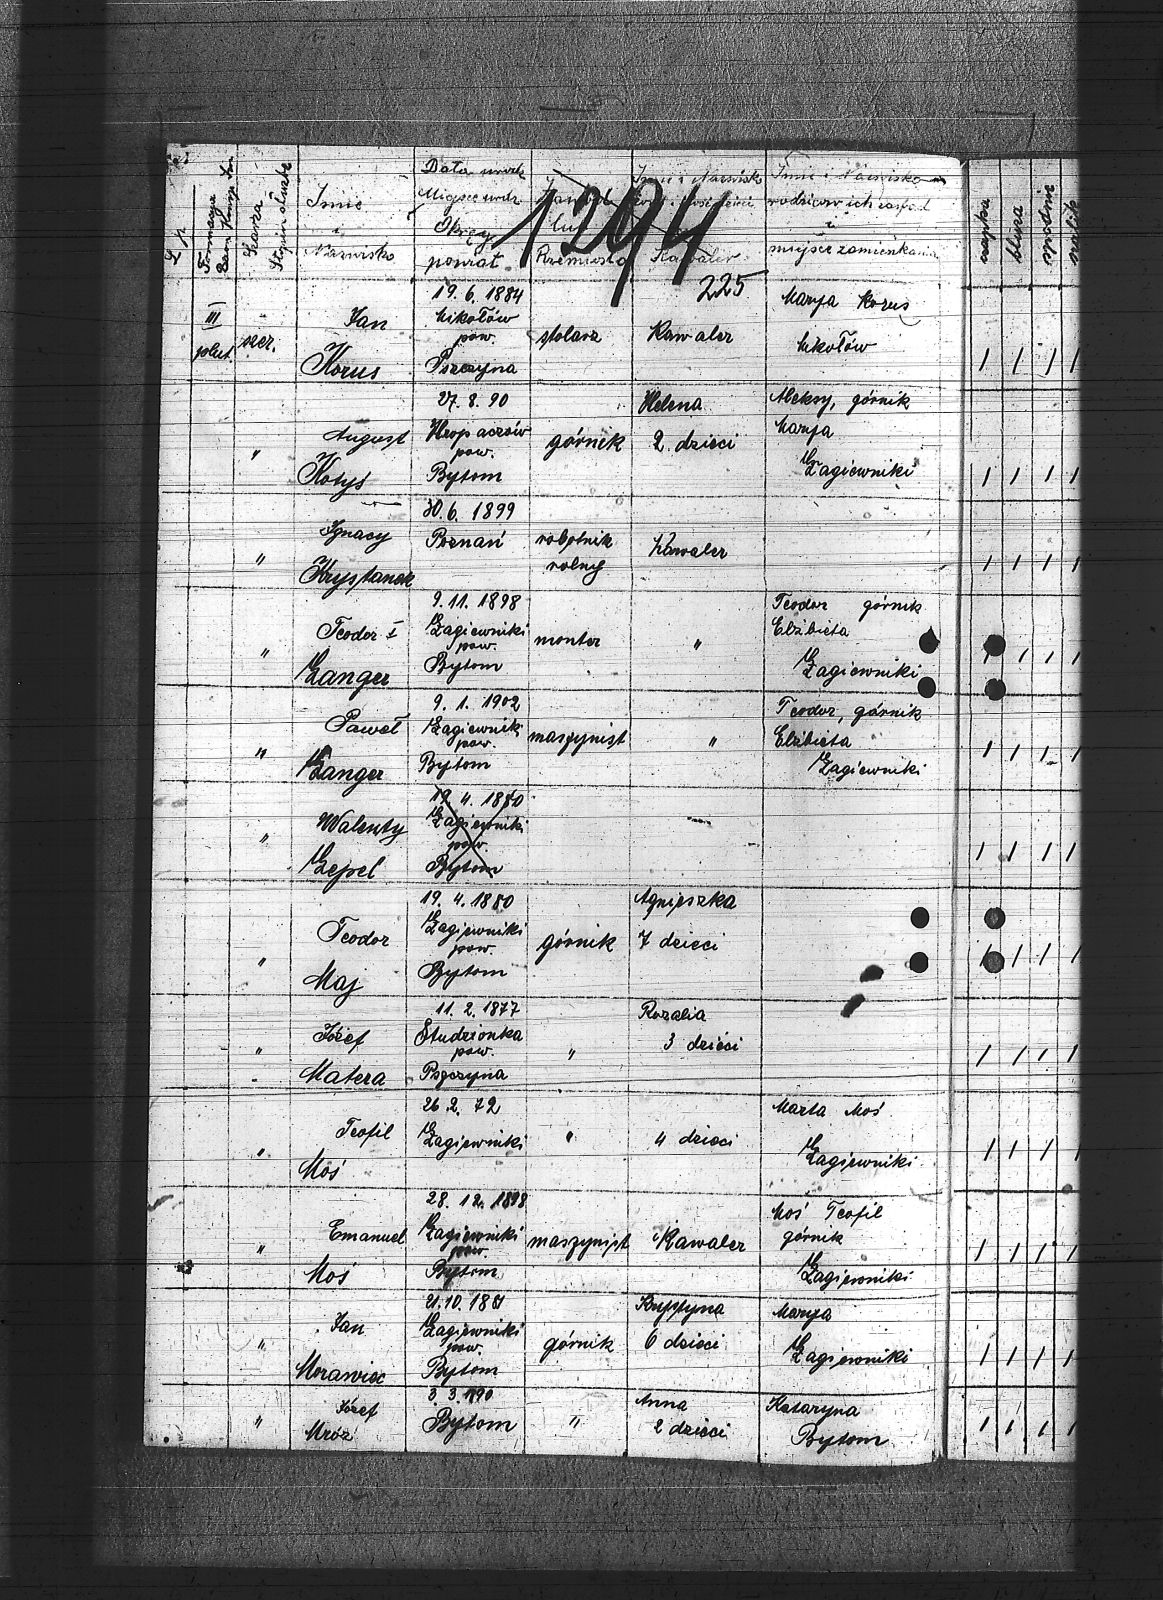 L.p.
Formacya
Szarża
Stopień służb
Imię
i
Nazwisko
Data urodz
Miejsce urodz
Okręg
powiat
Zawód
lub
Rzemiosło
Imię i Nazwisko
Kawaler
Imię i Nazwisko
rodziców ich zawód
i
miejsce zamieszkania
czapka
bluza
spodnie
1294
225
III
plut.
szer.
Jan
Korus
19. 6. 1884
Mikołów
pow.
Pszczyna
stolarz
Kawaler
Marya Korus
Mikołów
/ / / /
"
August
Kotys
27. 8. 90
Chropaczów
pow.
Bytom
górnik
Helena
2 dzieci
Aleksy, górnik
Marya
Łagiewniki
/ / / /
"
Ignacy
Krystanek
30. 6. 1899
Poznań
robotnik
rolny
Kawaler
/ / / /
"
Teodor I
Langer
9. 11. 1898
Łagiewniki
pow.
Bytom
monter
"
Teodor górnik
Elżbieta
Łagiewniki
/ / / /
"
Paweł
Langer
9. 1. 1902
Łagiewnik
pow.
Bytom
maszynist
"
Teodor, górnik
Elżbieta
Łagiewniki
/ / / /
"
Walenty
Lepel
19. 4. 1880
Łagiewniki
pow.
Bytom
/ / / /
"
Teodor
Maj
19. 4. 1880
Łagiewniki
pow.
Bytom
górnik
Agnieszka
7 dzieci
/ / / /
"
Józef
Matera
11. 2. 1877
Studzionka
pow.
Pszczyna
"
Rozalia
3 dzieci
/ / / /
"
Teofil
Moś
26. 2. 72
Łagiewniki
"
4 dzieci
Marta Moś
Łagiewniki
/ / / /
"
Emanuel
Moś
28. 12. 1898
Łagiewniki
pow.
Bytom
maszynist
Kawaler
Moś Teofil
górnik
Łagiewniki
/ / / /
"
Jan
Morawiec
21. 10. 1881
Łagiewniki
pow.
Bytom
górnik
Krystyna
6 dzieci
Marya
Łagiewniki
/ / / /
"
Józef
Mróz
3. 3. 1890
Bytom
"
Anna
2 dzieci
Katarzyna
Bytom
/ / / /